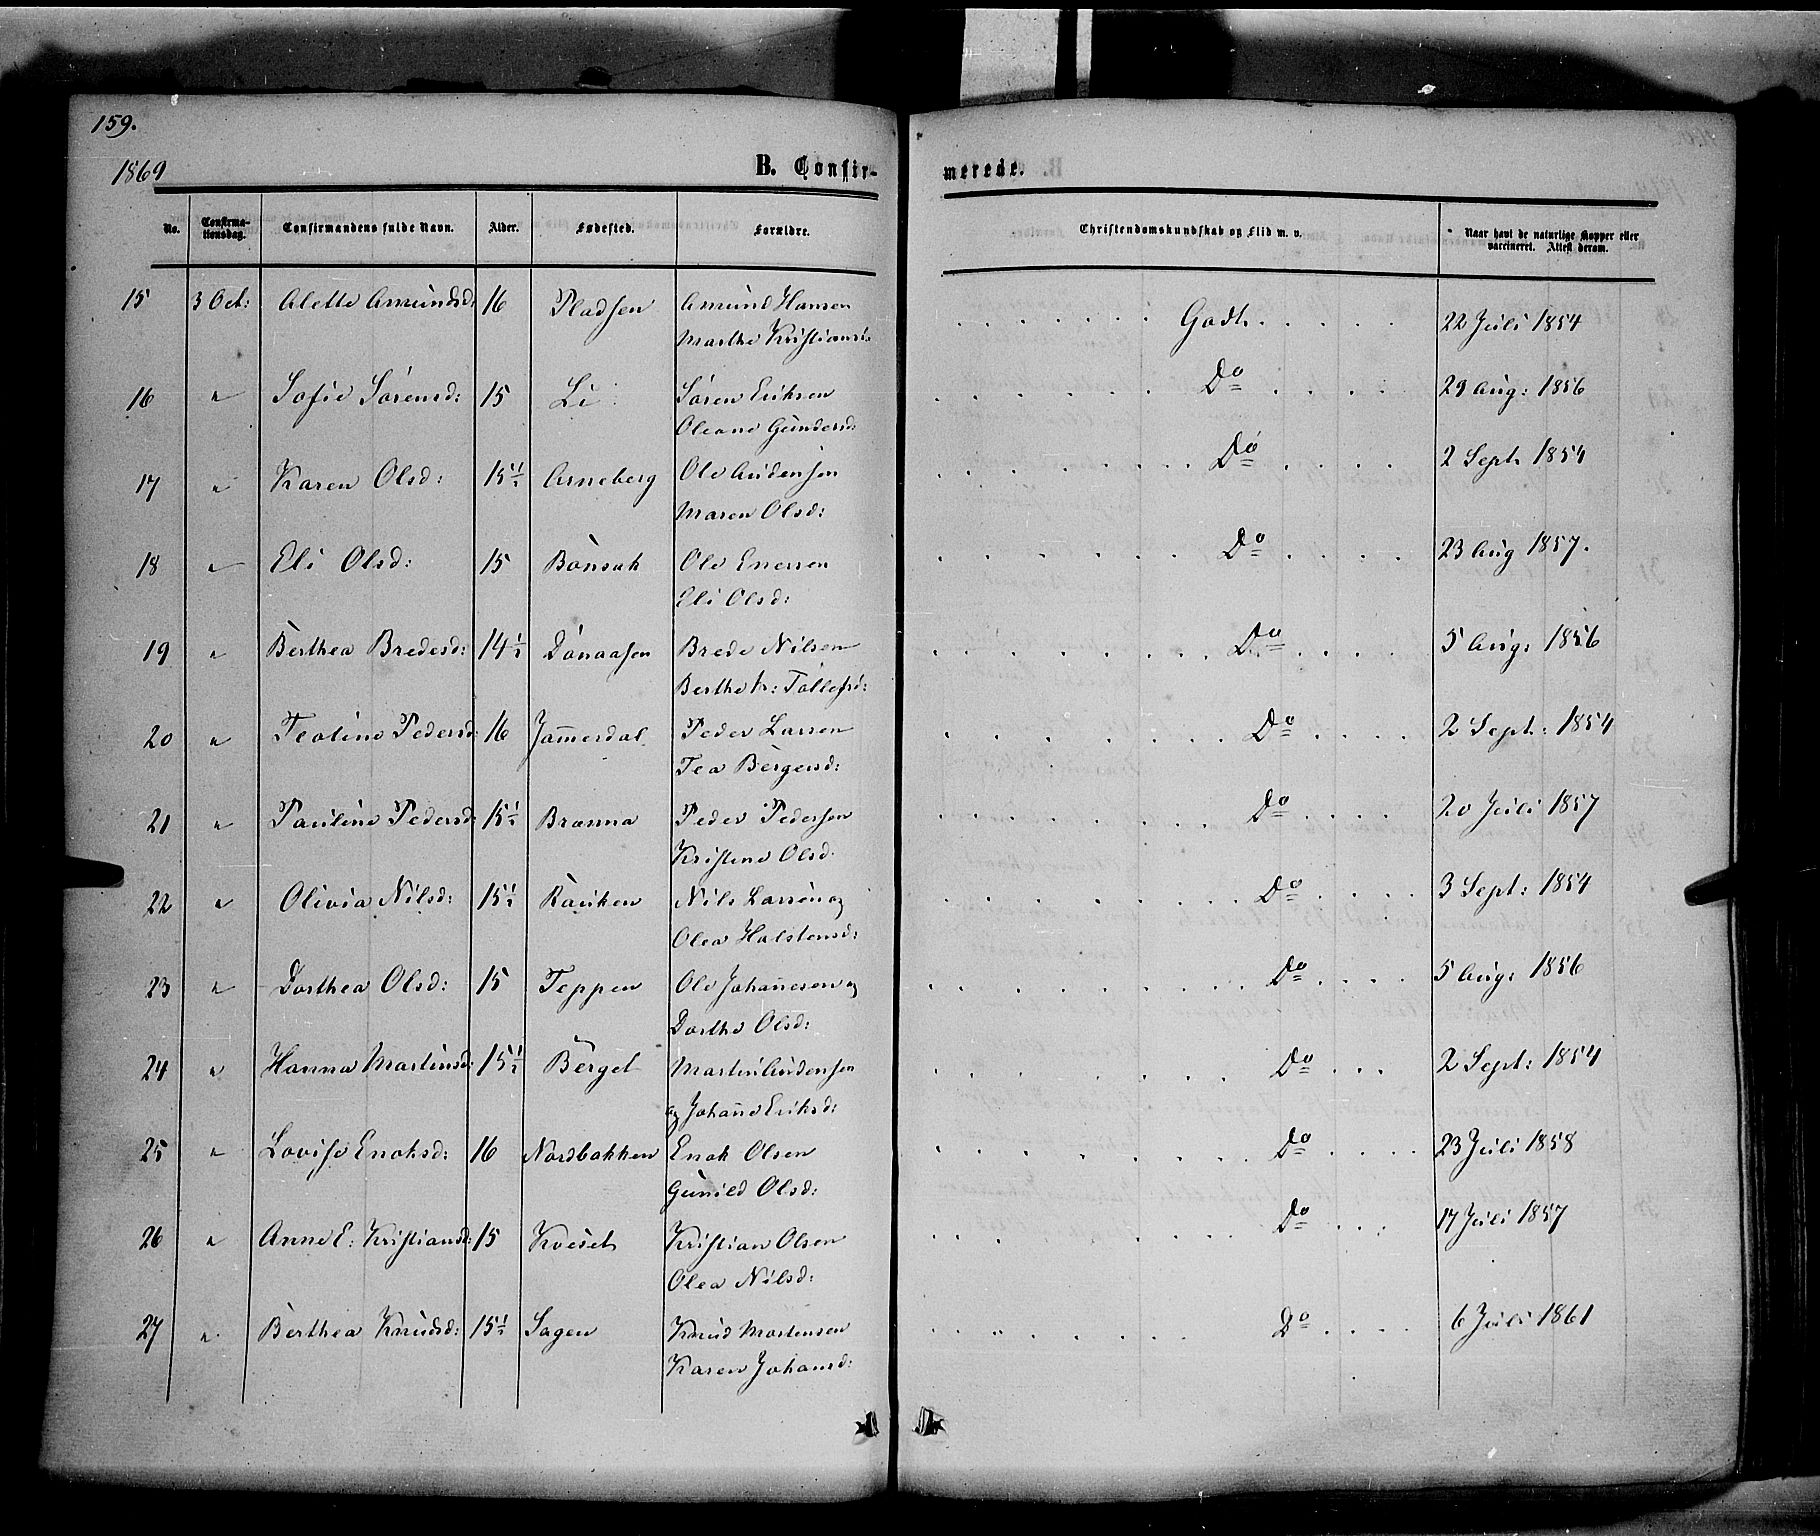 159.
1869
B. Confir-
merede.
No. Confirma-tionsdag. Confirmandens fulde Navn. Alder. Fødested. Forældre. Christendomskundskab og Flid m. v. Naar havt de naturlige Kopper eller vaccineret. Attest derom.
15 3 Oct: Alette Amundsd: 16 Pladsen Amund Hansen Godt. 22 Juli 1854
Marthe Kristiansd:
16 " Sofie Sørensd: 15 Li Søren Eriksen Do 29 Aug: 1856
Oleane Gundersd:
17 " Karen Olsd: 15½ Arneberg Ole Audensen Do 2 Sept. 1854
Maren Olsd:
18 " Eli Olsd: 15 Bønsak Ole Enersen Do 23 Aug 1857.
Eli Olsd:
19 " Berthea Bredesd: 14½ Dønaasen Brede Nilsen Do 5 Aug: 1856
Berthe K: Tollefsd:
20 " Teoline Pedersd: 16 Jam̄erdal Peder Larsen Do 2 Sept: 1854
Tea Bergersd:
21 " Pauline Pedersd: 15½ Branna Peder Pedersen Do 20 Juli 1857
Kristine Olsd.
22 " Olivia Nilsd: 15½ Rauken Nils Larsen og Do 3 Sept: 1854
Olea Halstensd:
23 " Dorthea Olsd: 15 Teppen Ole Johan̄esen og Do 5 Aug: 1856
Dorthe Olsd:
24 " Hanna Martinsd: 15½ Berget Martin Audensen Do 2 Sept: 1854
og Johan̄e Eriksd:
25 " Lovise Enoksd: 16 Nordbakken Enok Olsen Do 23 Juli 1858
Gunild Olsd:
26 " Anne E: Kristiansd: 15 Kveset Kristian Olsen Do 17 Juli 1857
Olea Nilsd:
27 " Berthea Knudsd: 15½ Sagen Knud Mortensen Do 6 Juli 1861
Karen Johansd: